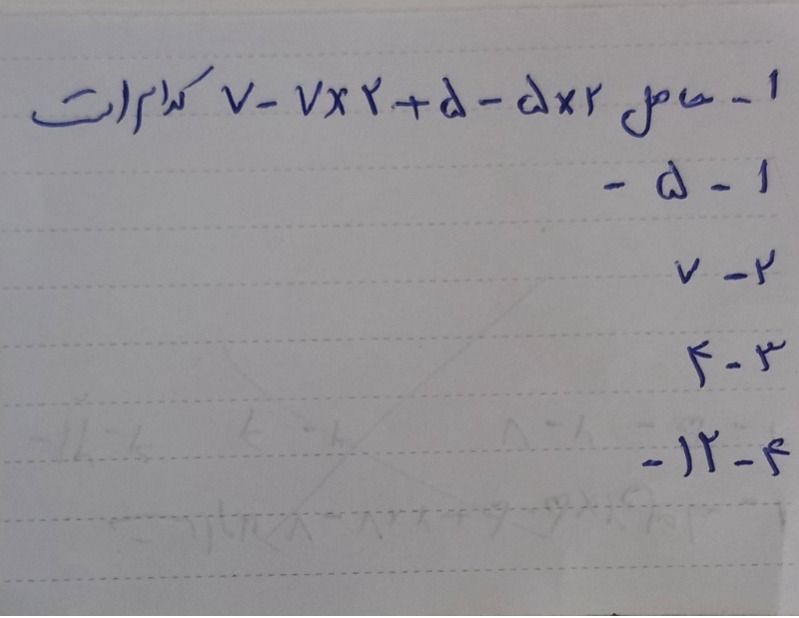 ۱- حاصل ۷-۷×۲+۵-۵×۲ کدام است
۱- ۵-
۲- ۷
۳- ۴
۴- ۱۲-